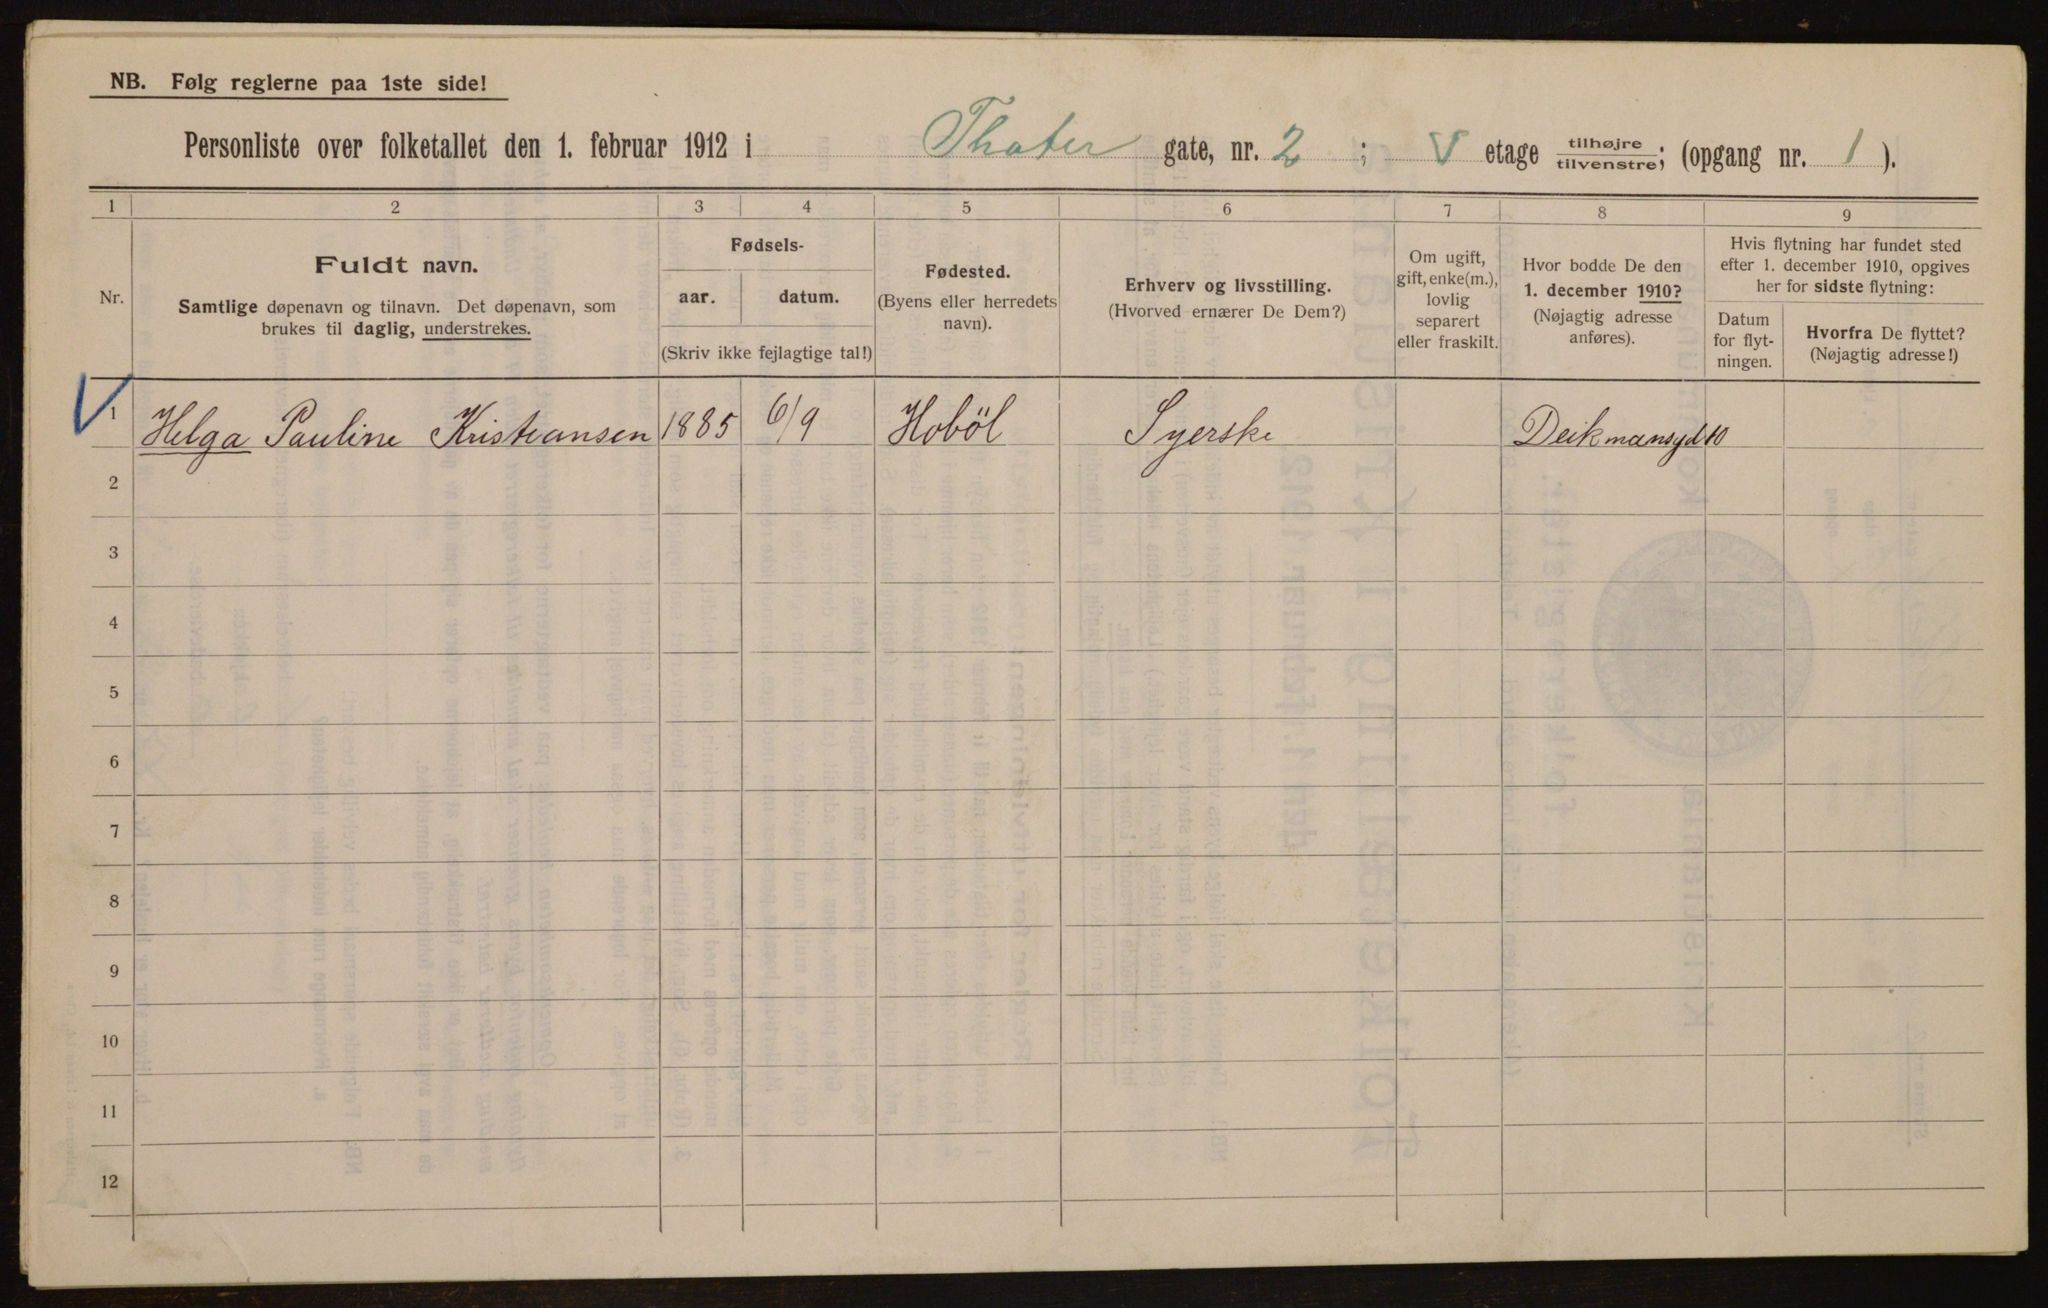 NB. Følg reglerne paa 1ste side!
Personliste over folketallet den 1. februar 1912 i Thater gate, nr. 2 ; V etage tilhøjre/tilvenstre; (opgang nr. 1 ).
1 2 3 4 5 6 7 8 9
Nr.
Fuldt navn.
Samtlige døpenavn og tilnavn. Det døpenavn, som
brukes til daglig, understrekes.
Fødsels-
aar. datum.
(Skriv ikke fejlagtige tal!)
Fødested.
(Byens eller herredets
navn).
Erhverv og livsstilling.
(Hvorved ernærer De Dem?)
Om ugift,
gift, enke(m.),
lovlig
separert
eller fraskilt.
Hvor bodde De den
1. december 1910?
(Nøjagtig adresse
anføres).
Hvis flytning har fundet sted
efter 1. december 1910, opgives
her for sidste flytning:
Datum
for flyt-
ningen.
Hvorfra De flyttet?
(Nøjagtig adresse!)
1 Helga Pauline Kristiansen 1885 6/9 Hoböl Syerske Deikmansgd 10
2
3
4
5
6
7
8
9
10
11
12